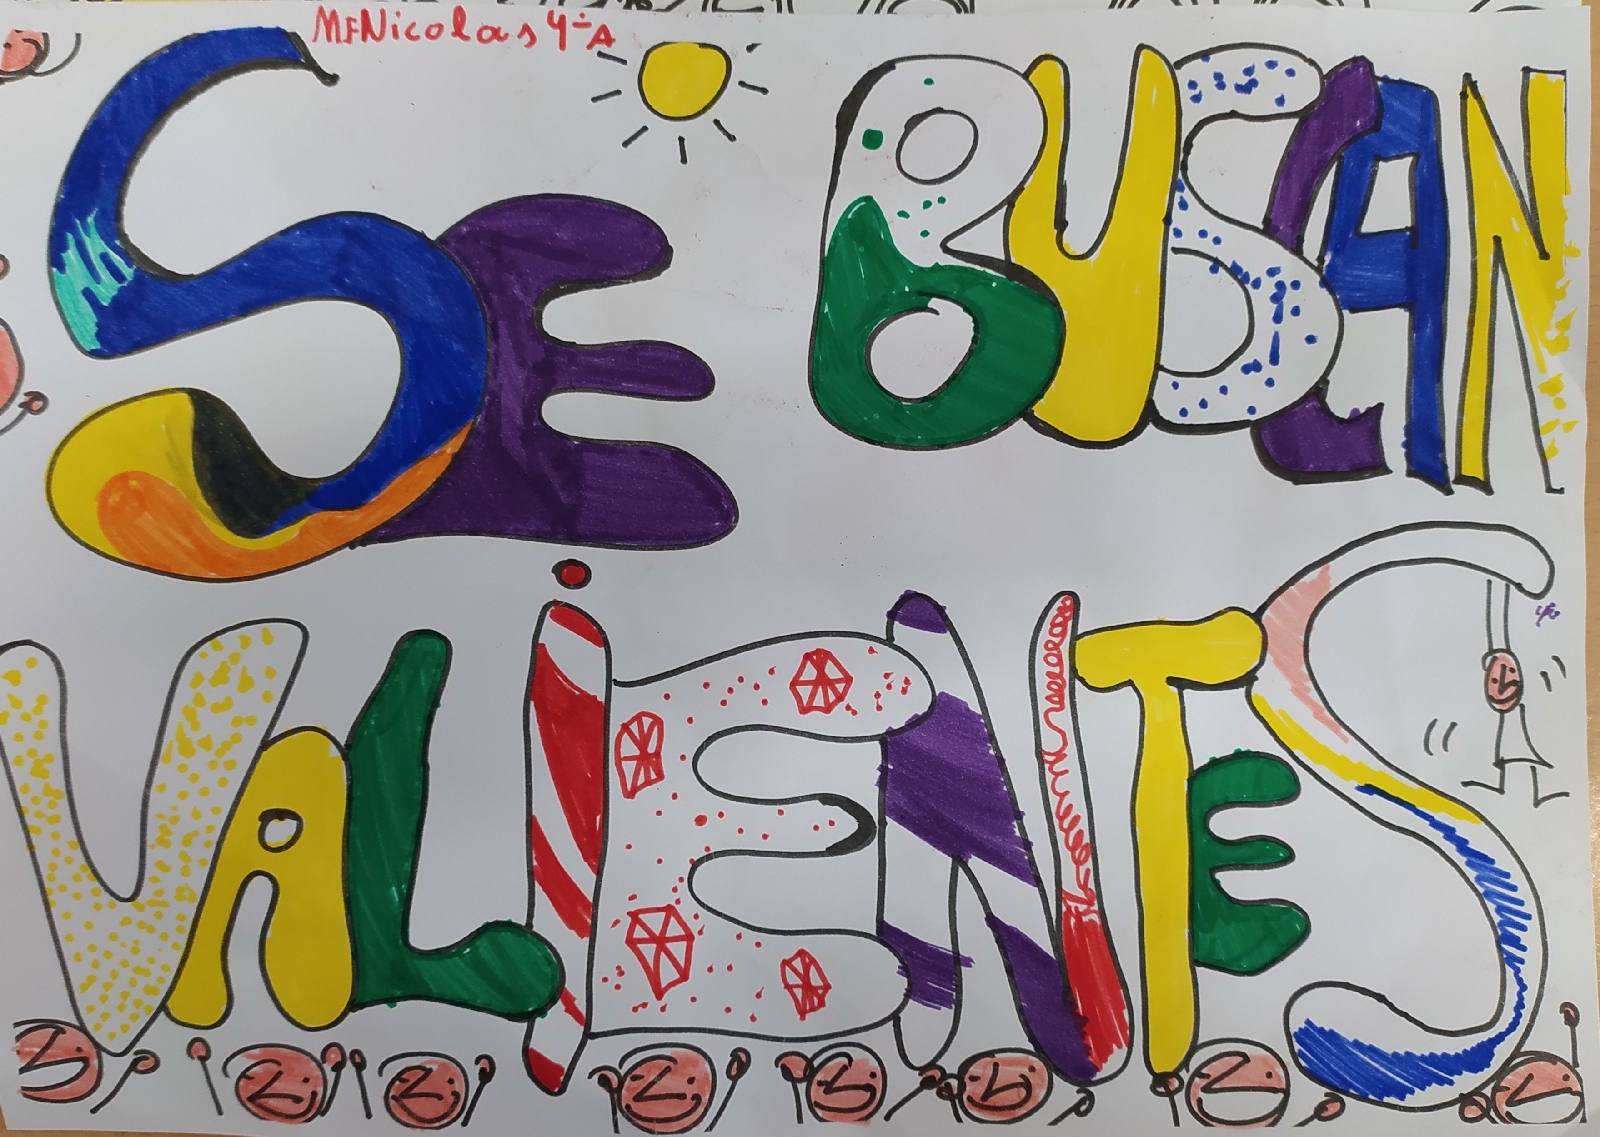 Nicolas 4ºA
SE BUSCAN
VALiENTES